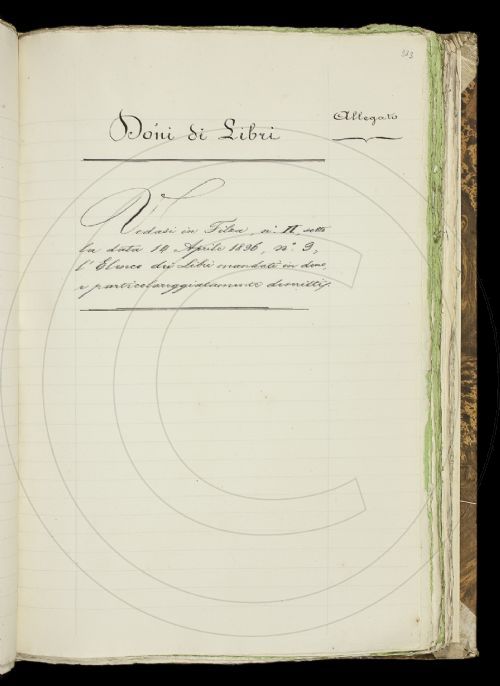 Allegato
Doni di Libri
Vedasi in Filza, n.° II, sotto
la data 14 Aprile 1896, n.° 9,
l'Elenco dei Libri mandati in dono,
e particolareggiatamente descritti.